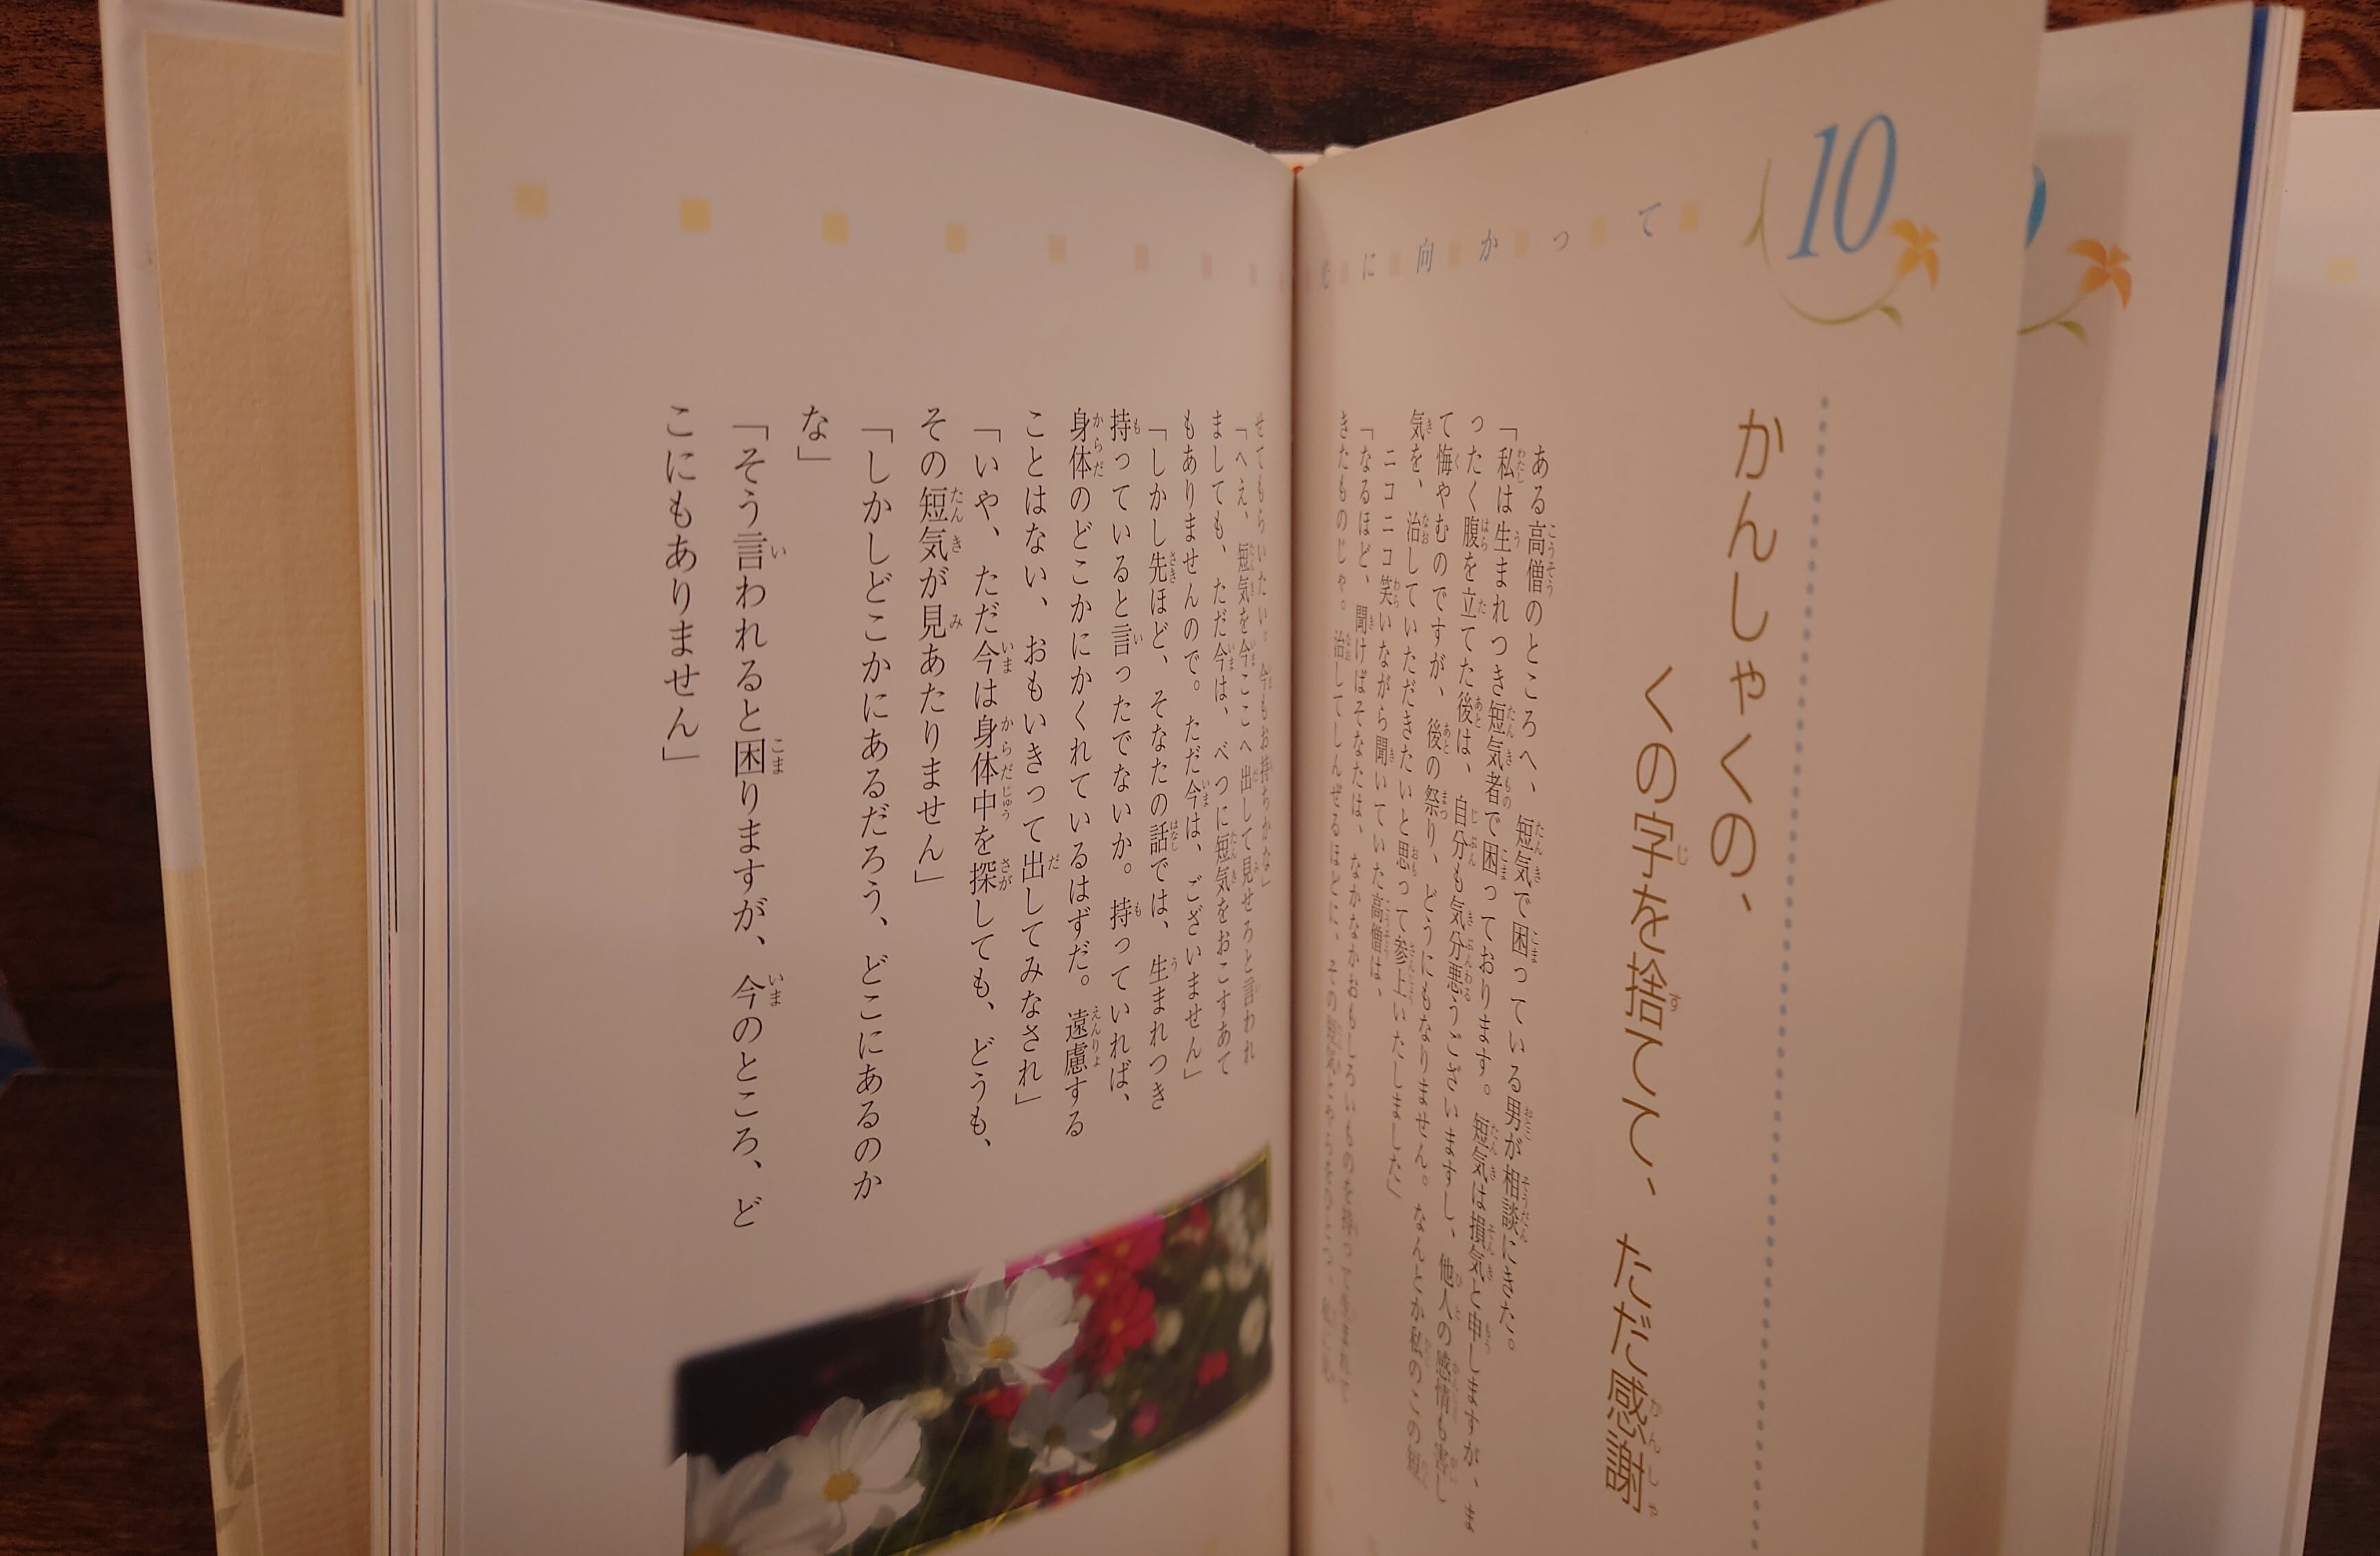 10
に向かって
かんしゃくの、
くの字を捨てて、ただ感謝
ある高僧のところへ、短気で困っている男が相談にきた。
「私は生まれつき短気者で困っております。短気は損気と申しますが、ま
ったく腹を立てた後は、自分も気分悪うございますし、他人の感情も害し
て悔やむのですが、後の祭り、どうにもなりません。なんとか私のこの短
気を、治していただきたいと思って参上いたしました」
ニコニコ笑いながら聞いていた高僧は、
「なるほど、聞けばそなたは、なかなかおもしろいものを持って
きたものじゃ。治してしんぜるほどに、その
せてもらいたい。今もお持ちかな」
「へえ、短気を今ここへ出して見せろと言われ
ましても、ただ今は、べつに短気をおこすあて
もありませんので。ただ今は、ございません」
「しかし先ほど、そなたの話では、生まれつき
持っていると言ったでないか。持っていれば、
身体のどこかにかくれているはずだ。遠慮する
ことはない、おもいきって出してみなされ」
「いや、ただ今は身体中を探しても、どうも、
その短気が見あたりません」
「しかしどこかにあるだろう、どこにあるのか
な」
「そう言われると困りますが、今のところ、ど
こにもありません」